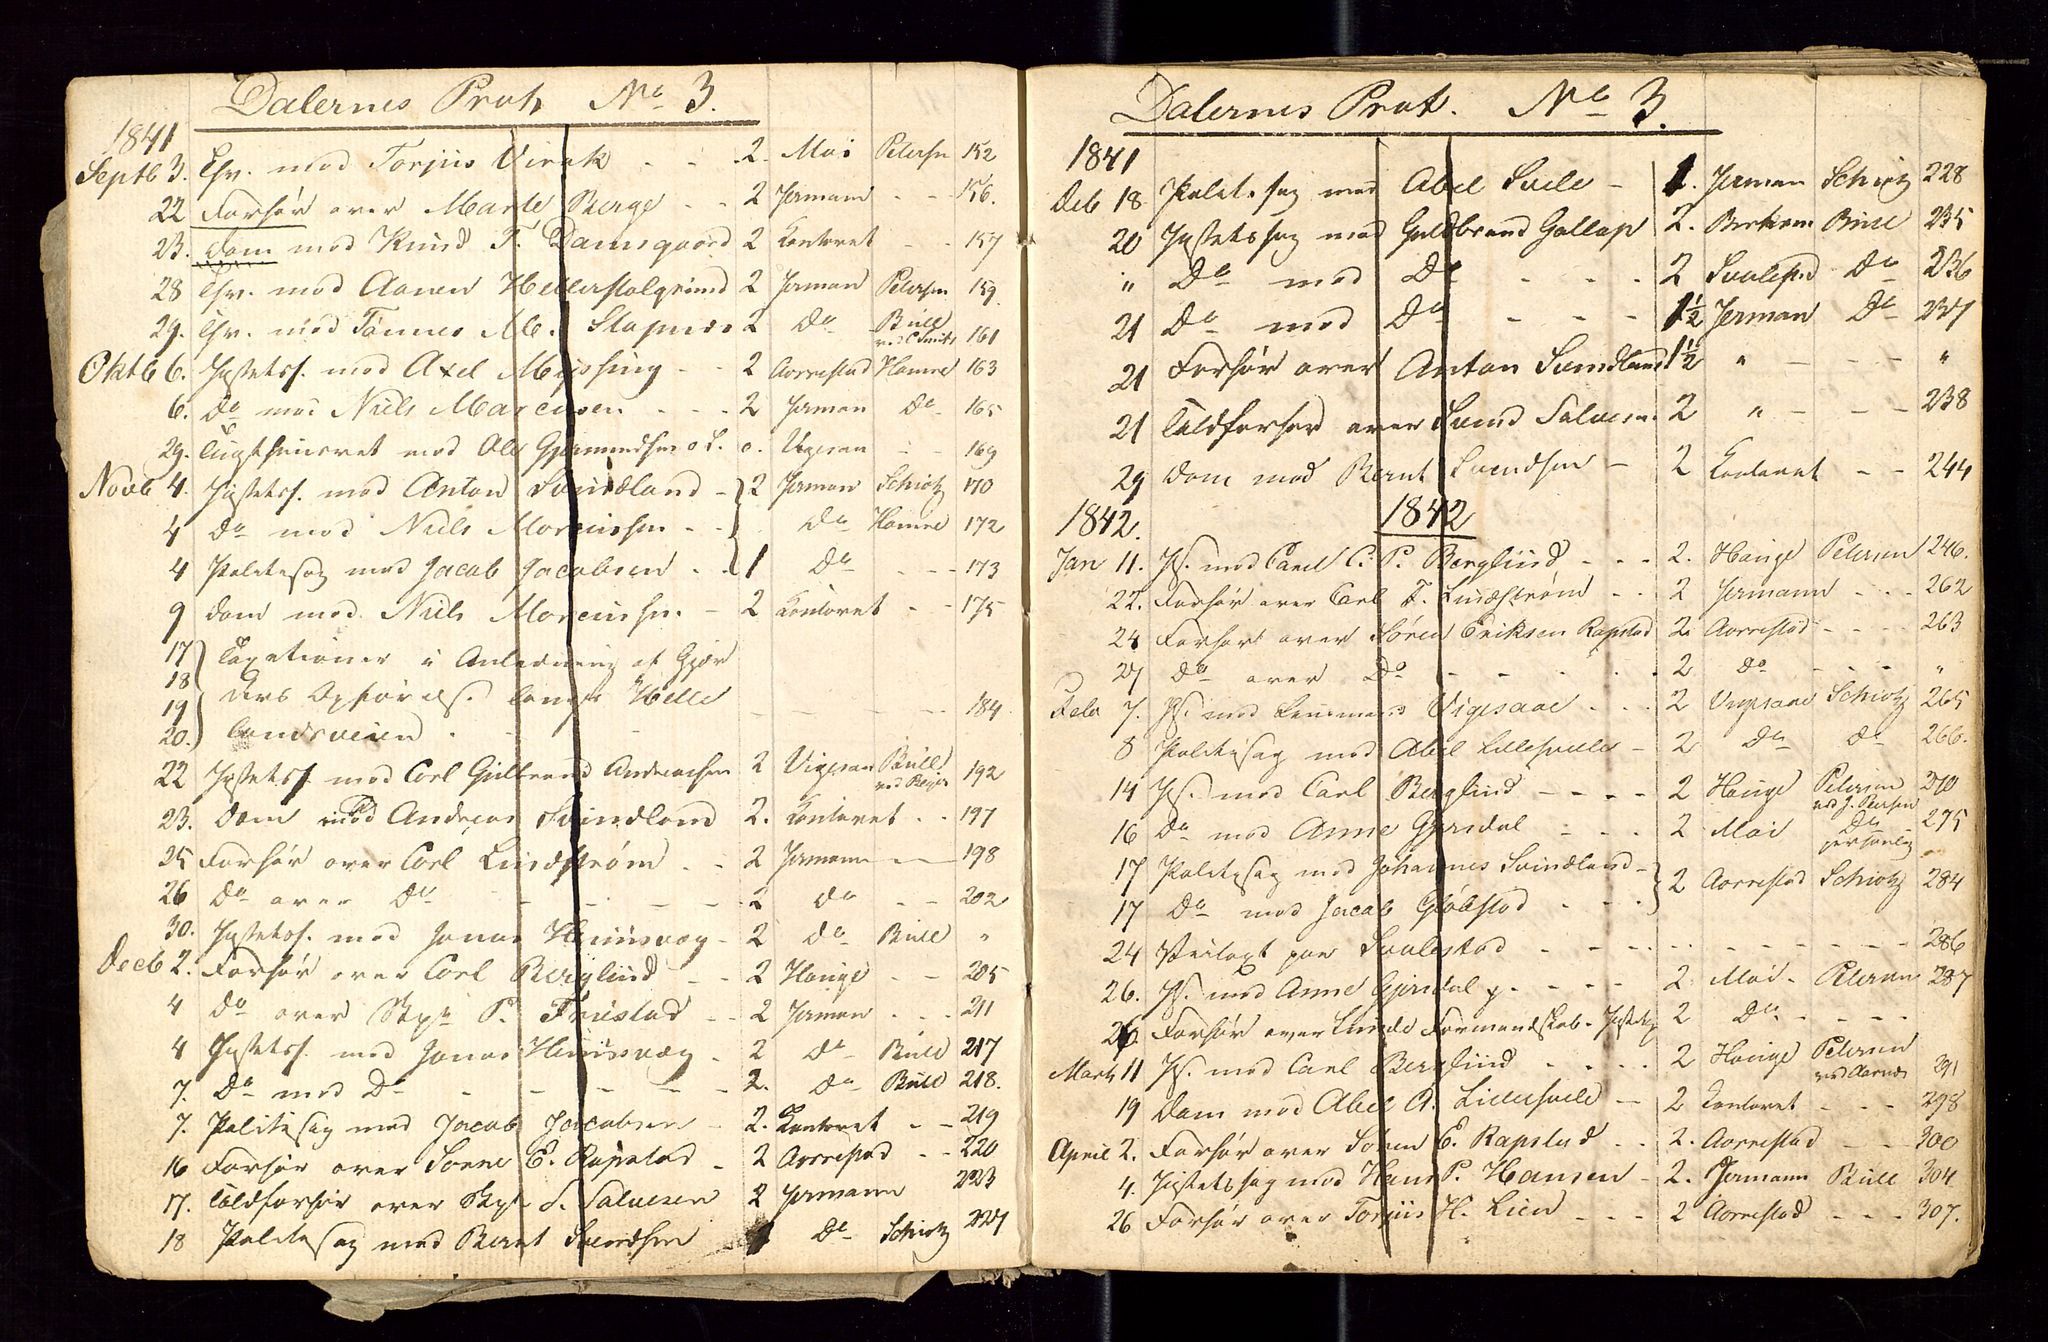 Dalernes Prot. No 3.
1841
Septb 3. Exr. mod Torjus Virak - - 2. Moi Petersn 152
22 Forhør over Marte Berge - - 2 Jermann - - 156.
23. Dom mod Knud T. Damsgaard 2 Kontoret - - 157
28 Exr. mod Aanen Hellerstolgrind 2 Jerman Petersen 159
29. Exr. mod Tønnes M. Stapnæs 2 Do Bull 161
Oktb 6. Justitss. mod Axel Meissing - - 2 Aarrestad Hamre 163
6. Do mod Niels Marcussen - - - 2 Jerman Do 165
29. Tugthuusret mod Ole Gjermundsen o. Vigesaa - - 169
Novb 4. Justitss. mod Anton Svindland - 2 Jerman Schiøtz 170
4 Do mod Niels Morcussen - - Do Hamre 172
4 Politisag mod Jacob Jacobsen - - 1 Do - - - 173
9 Dom mod Niels Morcussen - 2 Kontoret - - 175
17 Taxationer i Anledning af Gjær
18 ders Opførelse langs Helle
19 - - - - 184
20. Landsveien
22 Justitss. mod Carl Gulbrand Andreassen 2 Vigesaa Bull 192
23. Dom mod Andreas Svindland 2. Kontoret - - 197
25 Forhør over Carl Lindstrøm - - 2 Jermann - - 198
26 Do over Do - - - - - - 2 Do - - 202
30. Justitss. mod Jonas Hunsvæg - 2 Do Bull "
Decb 2. Forhør over Carl Berglund - - 2 Houge - - 205
4 Do over P. Frestad - - 2 Jerman - - - 211
4 Justitss. mod Jonas Hunsvæg - 2 Do Bull 217
7. Do mod Do - - - - - - 2. Do Bull 218.
7. Politisag mod Jacob Jacobsen - 2. Kontoret - - 219
16 Forhør over Sørne E. Rapstad - 2 Aarrestad - - 220
17. Toldforhør over S. Salvesen 2 Jermann 223
18 Politisag mod Bernt Svendsen 1 Do Schiøtz 227
Dalernes Prot. No 3.
1841
Deb 18 Politisag mod Abel Svele - 1. Jerman Schiøtz 228
20 Justitssag mod Guldbrand Gollop 2. Bull 235
" Do mod Do - - - 2 Svalestad Do 236
21 Do mod Do - - - - 1½ Jerman Do 237
21 Forhør over Anton Svindland 1½ " - - - "
21 Toldforhør over Svend Salvesen 2 " - - - 238
29 Dom mod Bernt Svendsen - 2 Kontoret - - 244
1842. 1842
Jan 11. Js. mod Carl C. P. Berglund - - - 2. Houge Petersen 246.
22. Forhør over Carl T. Lindstrøm - - 2 Jermann - - - 262
24 Forhør over Søren Eriksen Rapstad 2. Aarrestad - - - 263
27 Do over Do - - - - - 2 Do - - - "
Febr 7. Js. mod Lensmand Vigesaae - - - 2 Vigesaae Schiøtz 265
8 Politisag mod Abel Lillesvele - 2 Do Do 266.
14 Js. mod Carl Berglund - - - - 2 Houge Petersen 270
16 Do mod Anne Gjersdal - - - 2 Moi Do personlig 275
17 Politisag mod Johannes Svindland - 2 Aarrestad Schiøtz 284
17 Do mod Jacob Gløbstad - - -
24 Veitaxt paa Svalestad - - - - - - - - - 286
26. Js. mod Anne Gjersdal p. - - - - 2. Moi - Petersen 287
26 Forhør over Lunde Formandskab. 2 Do - - - -
Marts 11 Js. mod Carl Berglund - - - - 2 Houge Petersen 291
19 Dom mod Abel A. Lillesvele - - 2 Kontoret - - - 298
April 2. Forhør over Søren E. Rapstad - - 2. Aarrestad - - 300
4. Justitssag mod Hans P. Hansen - 2. Jermann Bull 304
26 Forhør over Torjus H. Lien - - - 2 Aarrestad - - - 307.